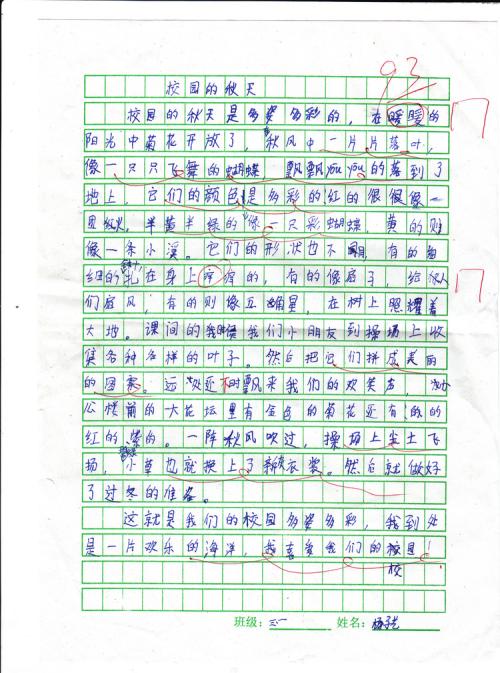 93
校园的秋天
校园的秋天是多姿多彩的,在暖暖的
阳光中菊花开放了,秋风中一片片落叶,
像一只只飞舞的蝴蝶飘飘的落到了
地上,它们的颜色是多彩的红的很很像一
团火,半黄半绿的像一只彩蝴蝶,黄的则
像一条小溪。它们的形状也不同,有的
细的扎在身上的,有的像扇子,给
们扇风,有的则像五角星,在树上照耀着
大地。课间的时候我们小朋友到操场上收
集各种各样的叶子。然后把它们拼成美丽
的图案。远处还不时飘来我们的欢笑声,
公楼前的大花坛里有金色的菊花还有的的
红的紫的。一阵秋风吹过,操场上尘土飞
扬,小草也就换上了新衣裳。然后就做好
了过冬的准备。
这就是我们的校园多姿多彩,我到处
是一片欢乐的海洋,我喜爱我们的校园!
校
班级:三一 姓名:杨